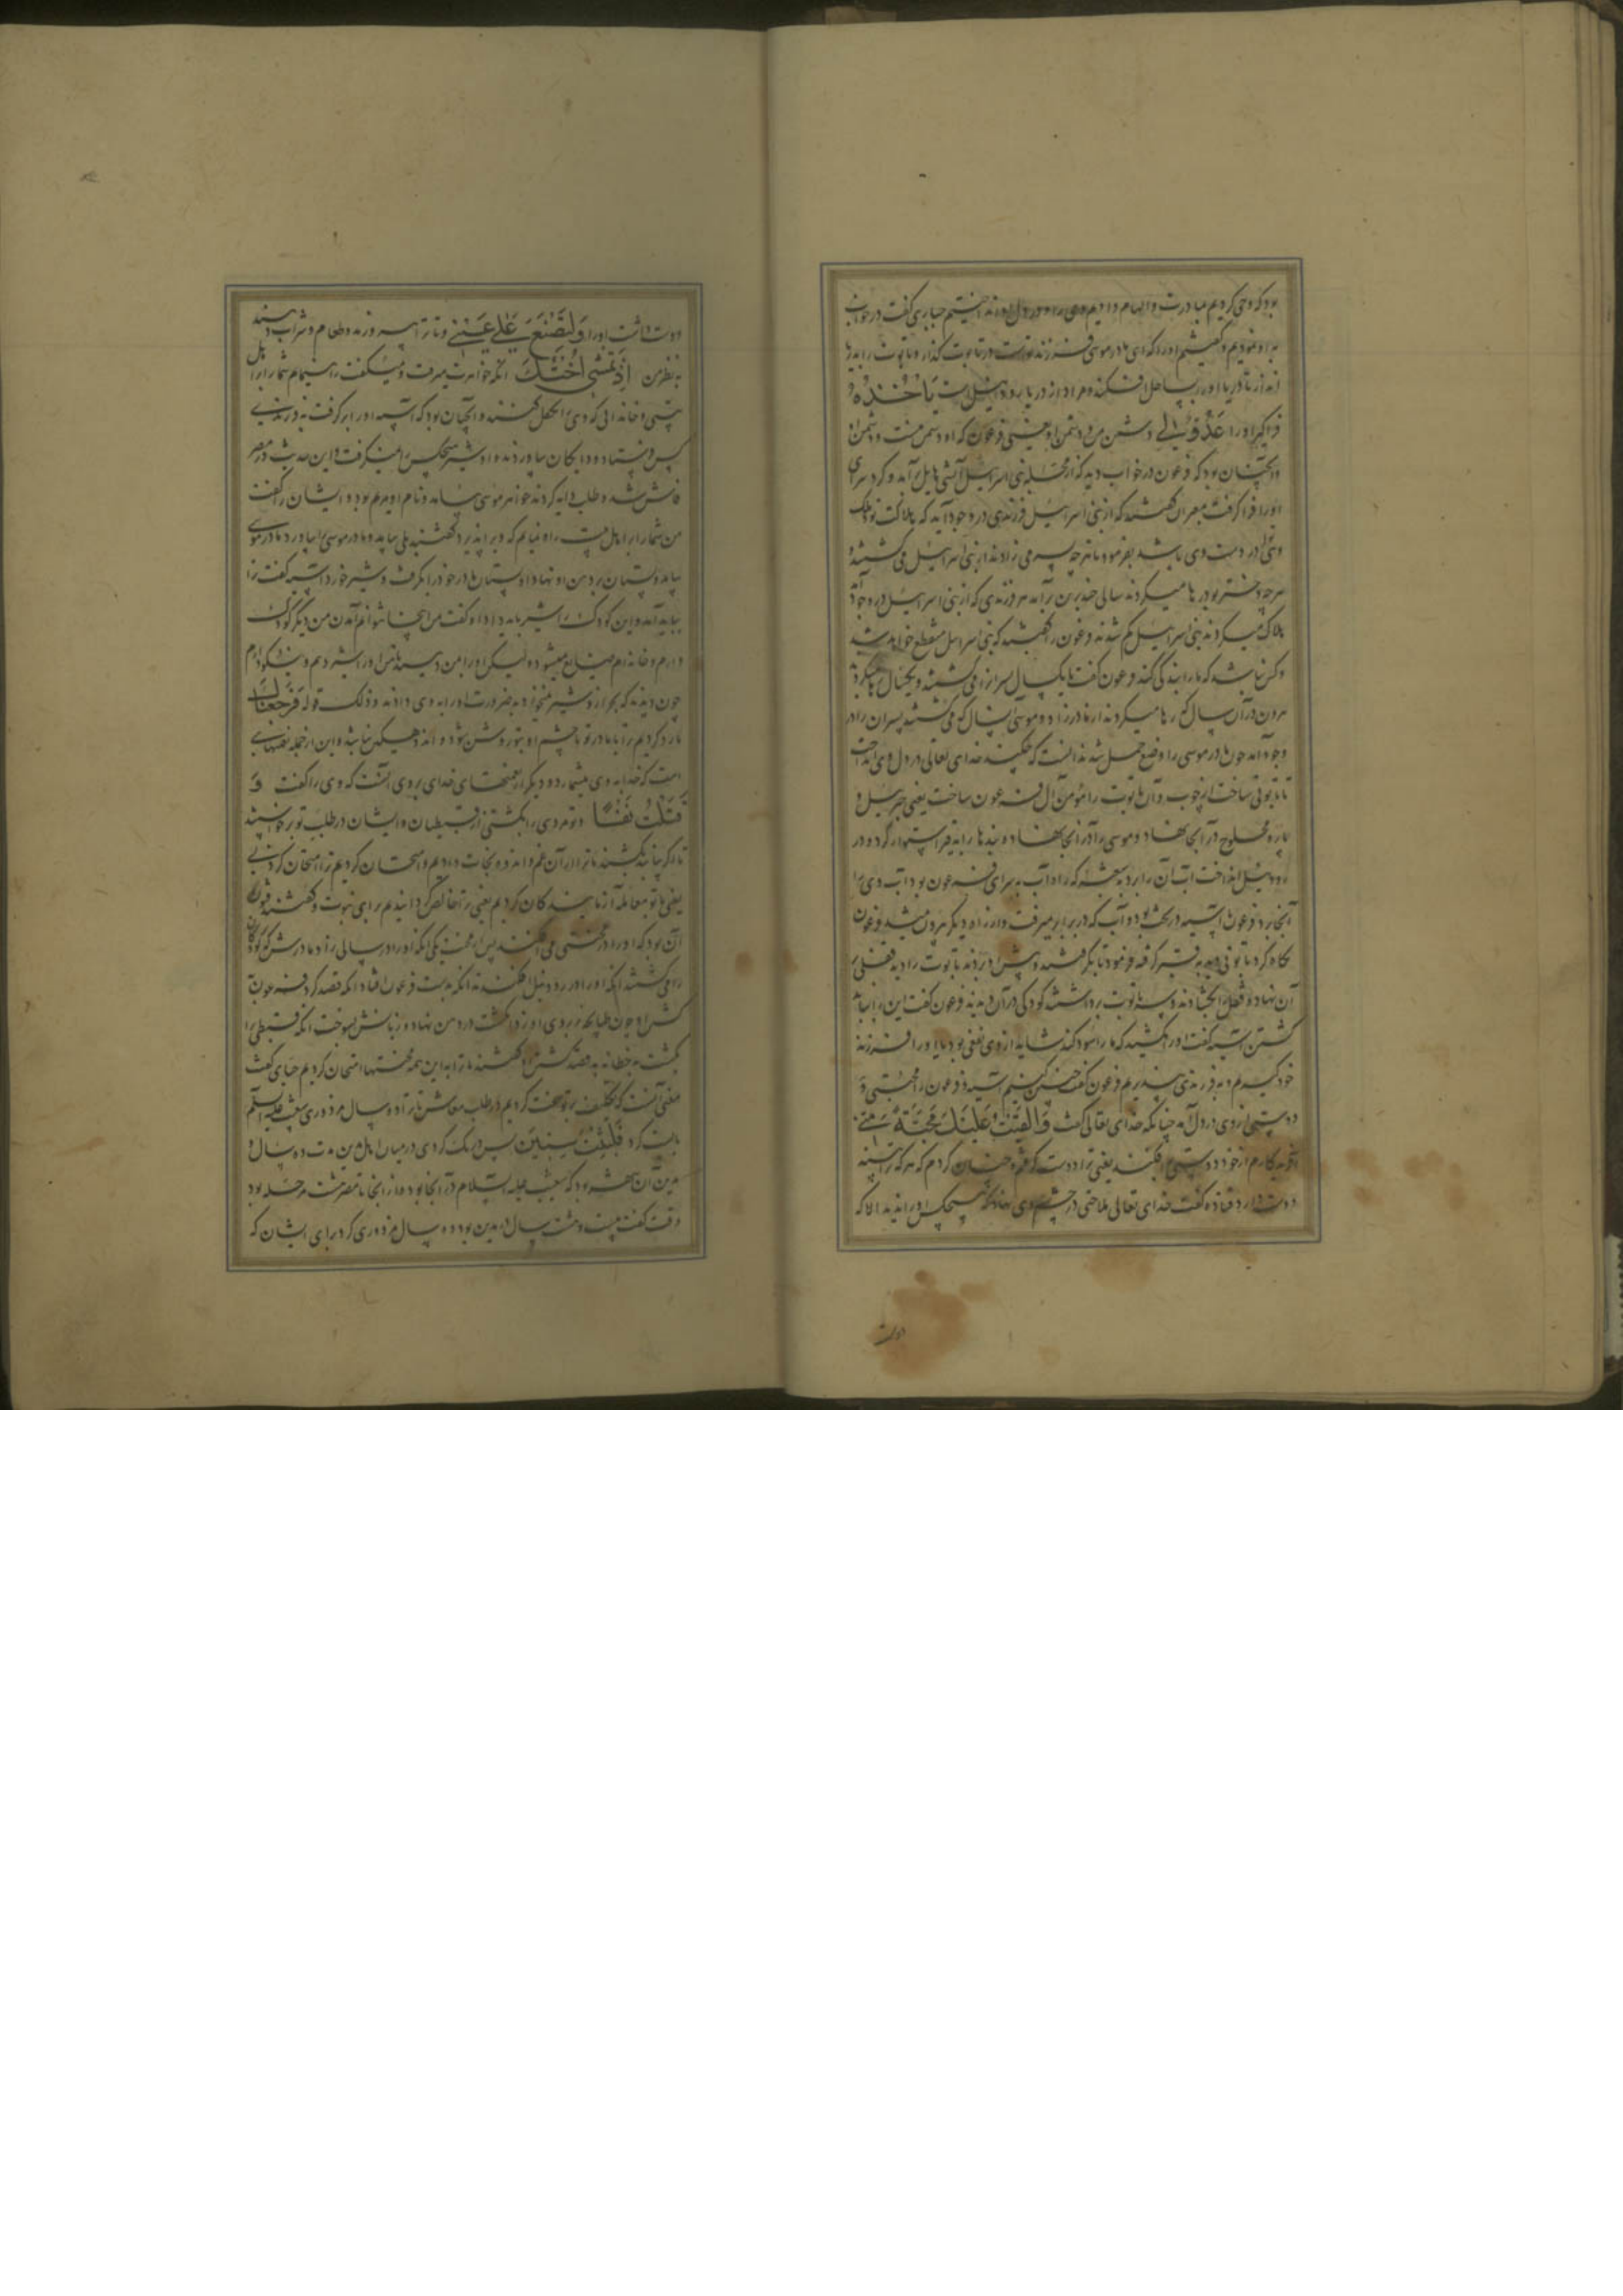 بود که وحی کردیم بمادرت و الهام دادیم وی را و در دل او انداختیم جبایی گفت در خواب
به او نمودیم و گفتیم او را که ای مادر موسی فرزند تو است در تابوت گذار و تابوت را به دریا
انداز تا دریا او را بساحل افکند و مراد از دریا رود نیل است یَأْخُذْهُ
فراگیرد او را عَدُوٌّ لِي دشمن من و دشمن او یعنی فرعون که او دشمن منست و دشمن او
و آنچنان بود که فرعون در خواب دید که از محله بنی اسرائیل آتشی هایل برآمد و گرد سرای
او را فرا گرفت معبران گفتند که از بنی اسرائیل فرزندی در وجود آید که هلاکت تو و ملک
در دست وی باشد بفرمود تا هرچه پسر می زادند از بنی اسرائیل می کشتند و
هرچه دختر بود رها میکردند سالی چند برین برآمد هر فرزندی که از بنی اسرائیل در وجود آمد
هلاک میکردند بنی اسرائیل کم شدند فرعون را گفتند که بنی اسرائیل منقطع خواهد شد
و کس نباشد که ما را بندگی کند فرعون گفت تا یکسال پسرانرا می کشتند و یکسال رها میکردند
هرون در آن سال که رها میکردند از مادر زاد و موسی آنسال که می کشتند پسران را در
وجود آمد چون مادر موسی را وضع حمل شد ندانست که چکند خدای تعالی در دل وی انداخت
تا تابوتی ساخت از چوب و آن تابوت را مؤمن آل فرعون ساخت یعنی حزبیل و
پاره محلوج در آنجا نهاد و موسی را در آنجا نهاد و بندها را به قیر استوار کرد و در
رود نیل انداخت آب آن را برد به که راه آب به سرای فرعون بود آب وی را
آنجا برد فرعون با آسیه در بود و آب که در برابر میرفت و از راه دیگر بیرون میشد فرعون
نگاه کرد تابوتی دید به قیر گرفته فرمود تا بگرفتند و پیش او بردند تابوت را دید قفلی بر
آن نهاده قفل را بگشادند و سر تابوت برداشتند کودکی در آن دیدند فرعون گفت این را بباید
کشتن آسیه گفت او را مکشید که ما را سود کند شاید از وی نفعی بود ما یا او را فرزند
خود گیریم و به فرزندی بپذیریم فرعون گفت چنین کنیم آسیه و فرعون را محبتی و
دوستی از وی در دل آمد چنانکه خدای تعالی گفت وَأَلْقَيْتُ عَلَيْكَ مَحَبَّةً مِنِّي
افکندم از خود دوستی افکند یعنی ترا دوست گرفتم و چنان کردم که هر که ترا بیند
دوست دارد قتاده گفت خدای تعالی ملاحتی در چشم وی نهاد که هیچکس او را ندید الا که
دوست
دوست داشت او را وَلِتُصْنَعَ عَلَى عَيْنِي و تا ترا بپرورند و طعام و شراب دهند
به نظر من إِذْ تَمْشِي أُخْتُكَ آنگه خواهرت میرفت و میگفت راه نمایم شما را بر اهل
بیتی و خاندانی که وی را تکفل کنند و آنچنان بود که آسیه او را برگرفت به فرزندی
کس فرستاد و دایگان بیاوردند و او شیر هیچکس را نمیگرفت و این حدیث در مصر
فاش شد و طلب دایه کردند خواهر موسی بیامد و نام او مریم بود و ایشان را گفت
من شما را بر اهل بیت راه نمایم که ویرا پذیرد گفتند بلی بیامد و مادر موسی را بیاورد مادر موسی
بیامد و پستان بر دهن او نهاد او پستان مادر خود را بگرفت و شیر خورد آسیه گفت ترا
بباید آمد و این کودک را شیر باید داد او گفت من اینجا نتوانم آمدن من دیگر کودک
دارم و خانه ام ضایع میشود لیکن او را بمن دهید تا من او را شیر دهم و نیکو دارم
چون دیدند که بجز از وی شیر نمیخورد به ضرورت او را به وی دادند و ذلک قوله فَرَجَعْنَاكَ
باز گردیدیم ترا با مادر تو تا چشم او بتو روشن شود و اندوهگین نباشد و این از جمله نعمتهائی
است که خدا به وی میشمارد و دیگر از نعمتهای خدای بر وی آنست که وی را گفت وَ
قَتَلْتَ نَفْسًا و تو مردی را بکشتی از قبطیان و ایشان در طلب تو برخواستند
تا ترا باز کشند ما ترا از آن غم و اندوه نجات دادیم و امتحان کردیم ترا امتحان کردنی
یعنی با تو معامله آزمایندگان کردیم یعنی ترا خالص گردانیدیم برای نبوت و گفتند فتون
آن بود که او را در محنتی می افکند پس از محنتی یکی آنکه او را در سالی زاد مادرش که کودکان
را می کشتند آنگه او را در رود نیل افکندند آنگه به دست فرعون افتاد آنگه قصد کرد فرعون
کشتن او چون طپانچه بر روی او زد انگشت در دهن نهاد و زبانش بسوخت آنگه قبطی را
بکشت به خطا نه به قصد کشتن او گفتند ما ترا به این همه محنتها امتحان کردیم جبایی گفت
معنی آنست که تکلیف بر تو سخت کردیم در طلب معاش تا ترا ده سال مزدوری شعیب علیه السلم
بایست کرد فَلَبِثْتَ سِنِينَ پس درنگ کردی در میان اهل مدین مدت ده سال و
مدین آن شهر بود که شعیب علیه السلام در آنجا بود و از آنجا تا مصر هشت مرحله بود
وقت گفت بیست و هشت سال در مدین بود ده سال مزدوری کرد برای ایشان که